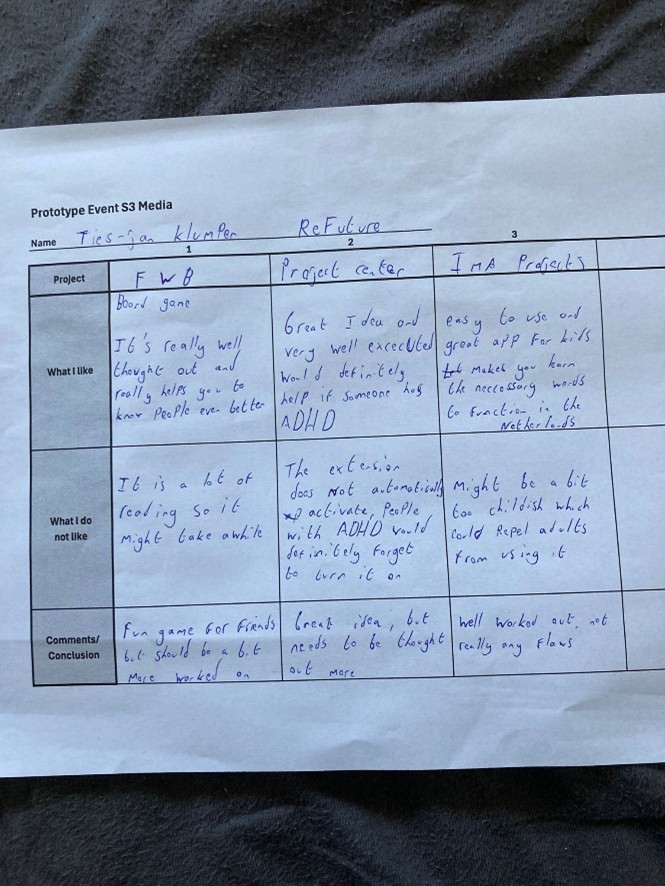 Prototype Event S3 Media
Name Ties-jan Klumper ReFuture
1 2 3
Project
FWB
Project center
IMA Projects
What I like
Board game
It's really well
thought out and
really helps you to
know People even better
Great Idea and
very well excecuted
Would definitely
help if someone has
ADHD
easy to use and
great app For kids
Makes you learn
the neccessary words
to Function in the
Netherlands
What I do
not like
It is a lot of
reading so it
Might take a while
The extension
does Not automatically
activate, People
with ADHD would
definitely Forget
to turn it on
Might be a bit
too childish which
could Repel adults
From using it
Comments/
Conclusion
Fun game For Friends
but should be a bit
More worked on
Great idea, but
needs to be thought
out more
Well worked out, not
really any Flaws